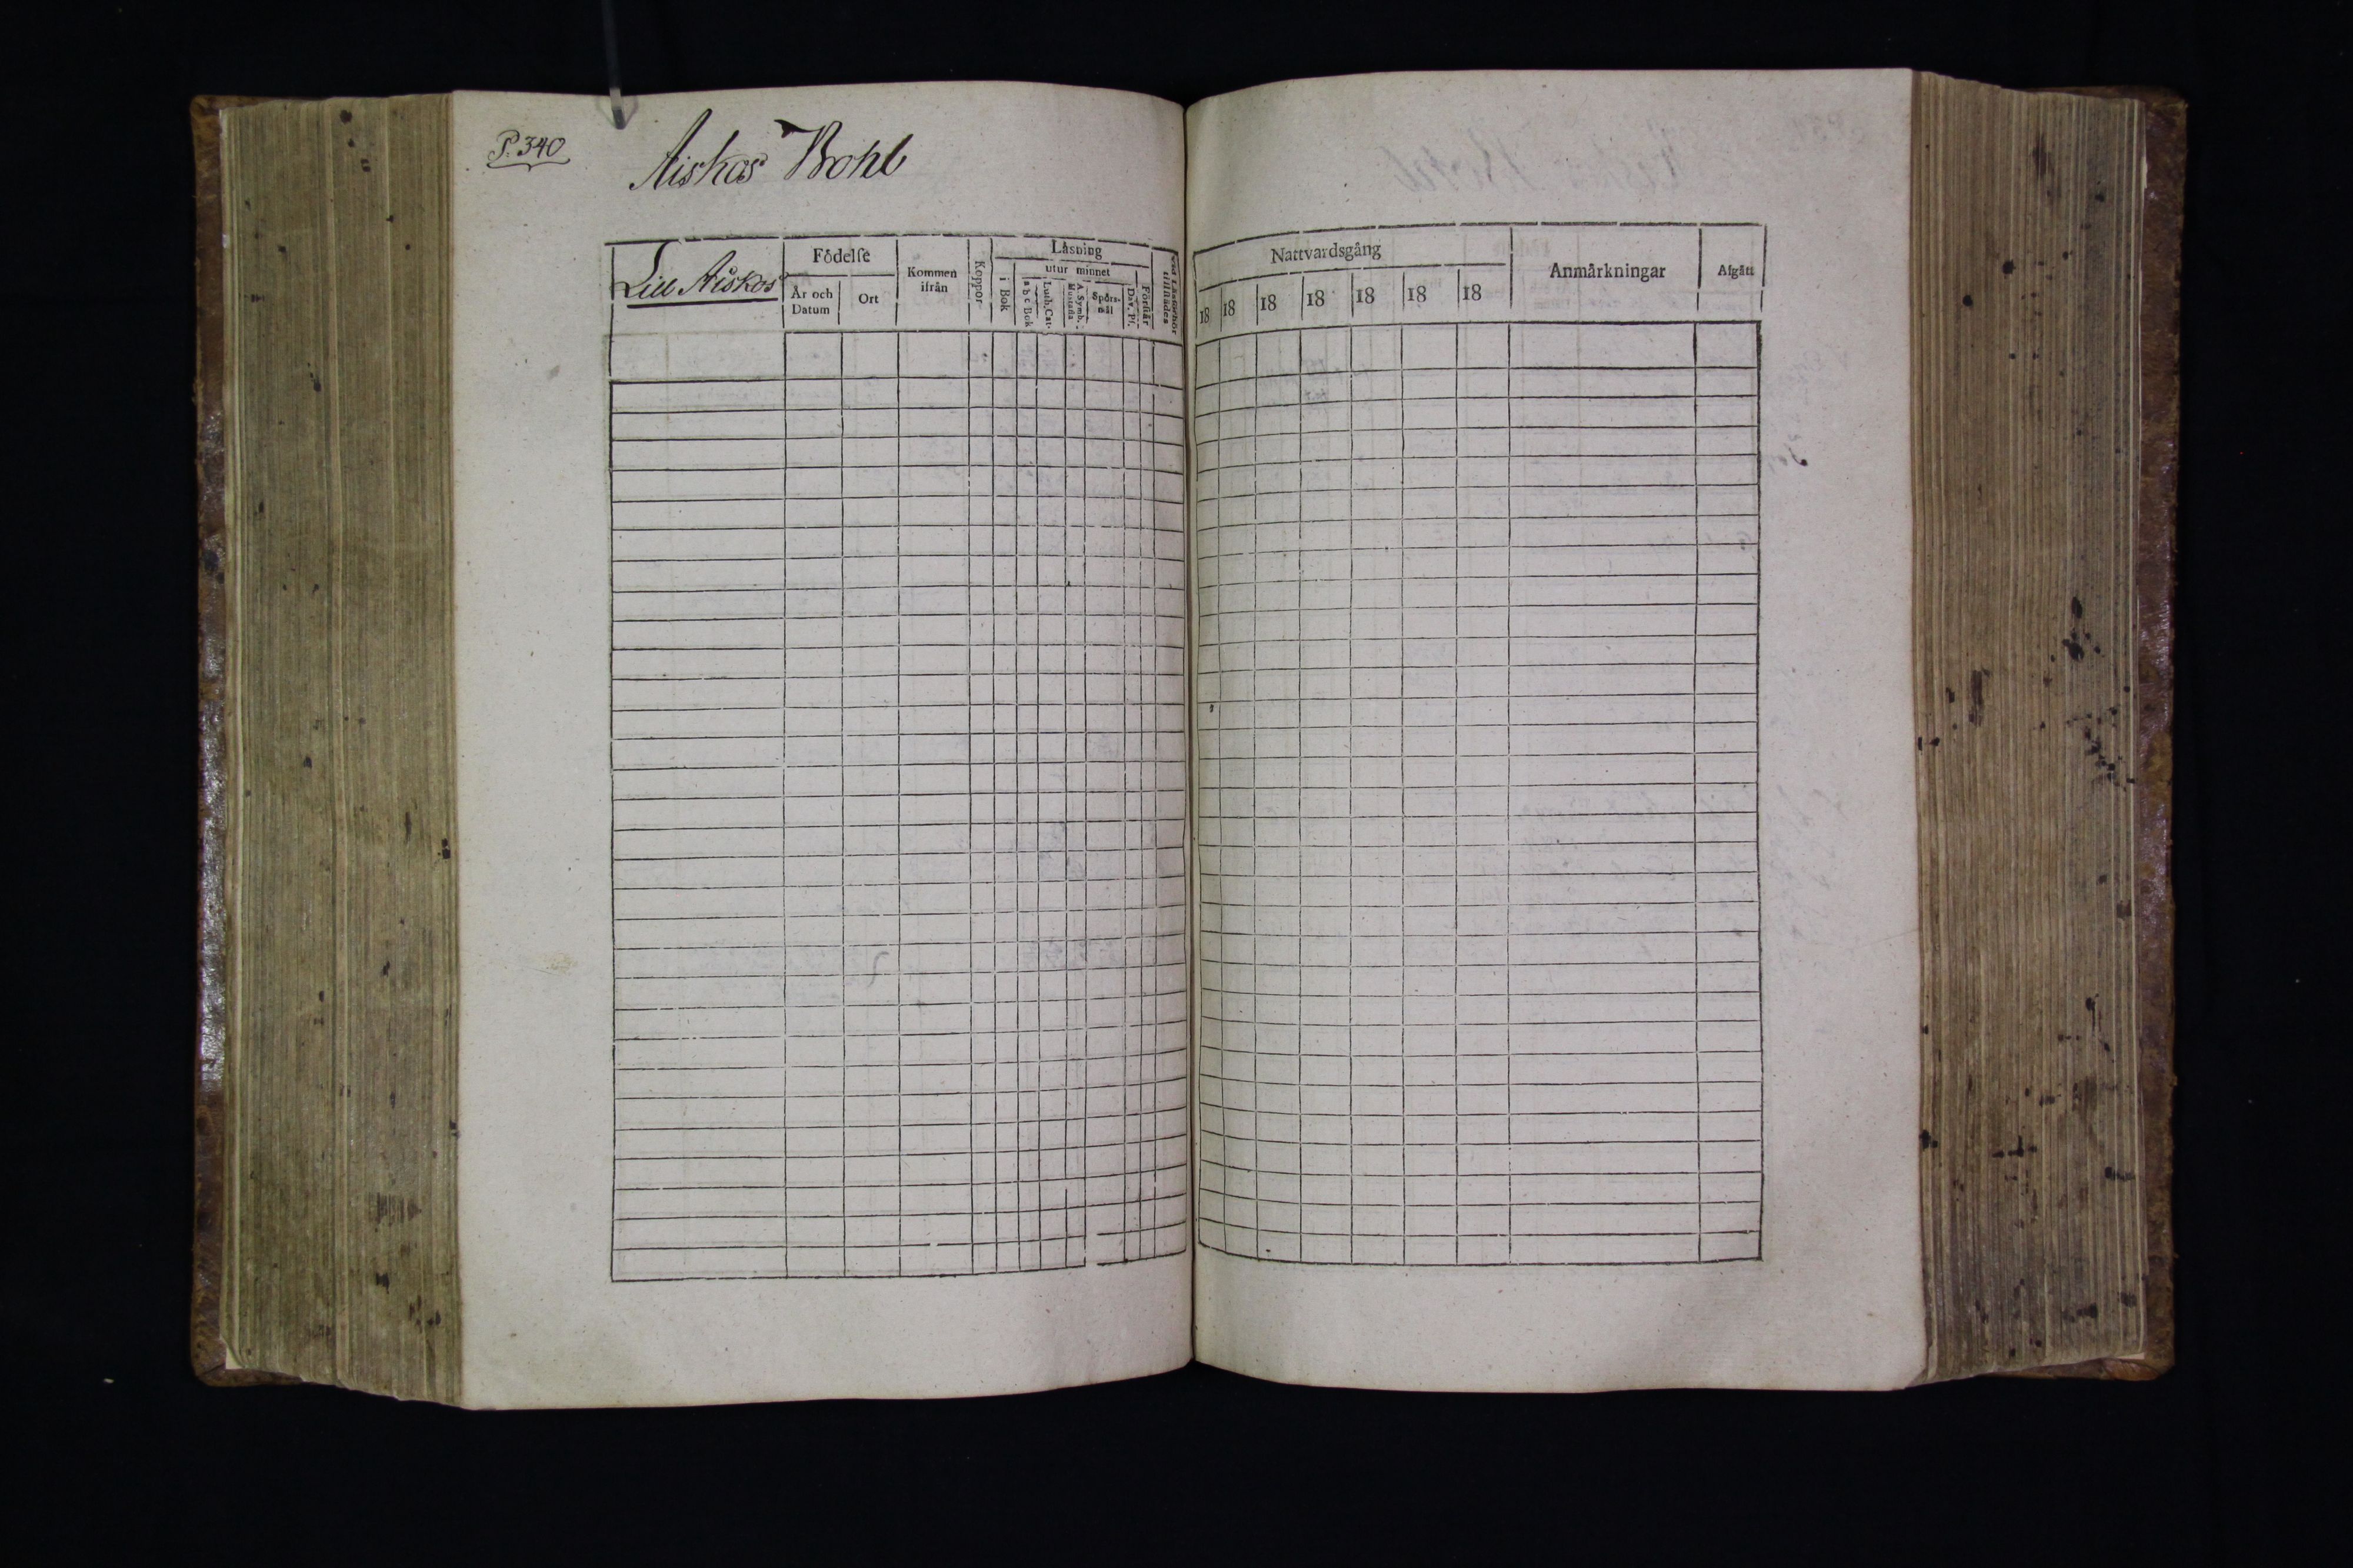 P. 340
Aiskos Bohl
Lill Aiskos
Födelse
År och Datum
Ort
Kommen ifrån
Koppor
Läsning
i Bok
utur minnet
a b c Bok
Luth. Cat.
A. Symb.
Spörsmål
Dav. Ps.
Förstår
Nattvardsgång
18 18 18 18 18 18 18
Anmärkningar
Afgått